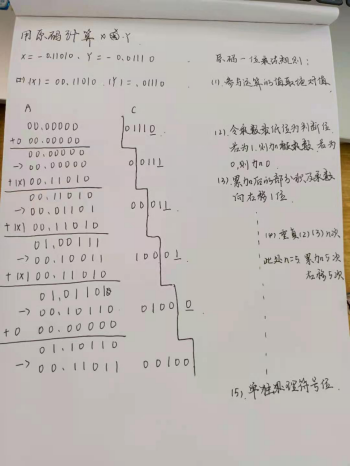 用原码计算X·Y
X = -0.11010 . Y = -0.01110
|X| = 00.11010 |Y| = .01110
A C
00.00000 01110
+0 00.00000
00.00000
→ 00.00000 00111
+|X| 00.11010
00.11010
→ 00.01101 00011
+|X| 00.11010
01.00111
→ 00.10011 10001
+|X| 00.11010
01.01101
→ 00.10110 01000
+0 00.00000
00.10110
→ 00.11011 00100
原码一位乘法规则:
(1). 参与运算的值取绝对值.
(2). 令乘数最低位为判断位
若为1.则加被乘数 若为
0.则加0.
(3). 累加后的部分积及乘数
向右移1位.
(4). 重复(2)(3)n次
此处n=5 累加5次
右移5次
(5). 单独处理符号位.